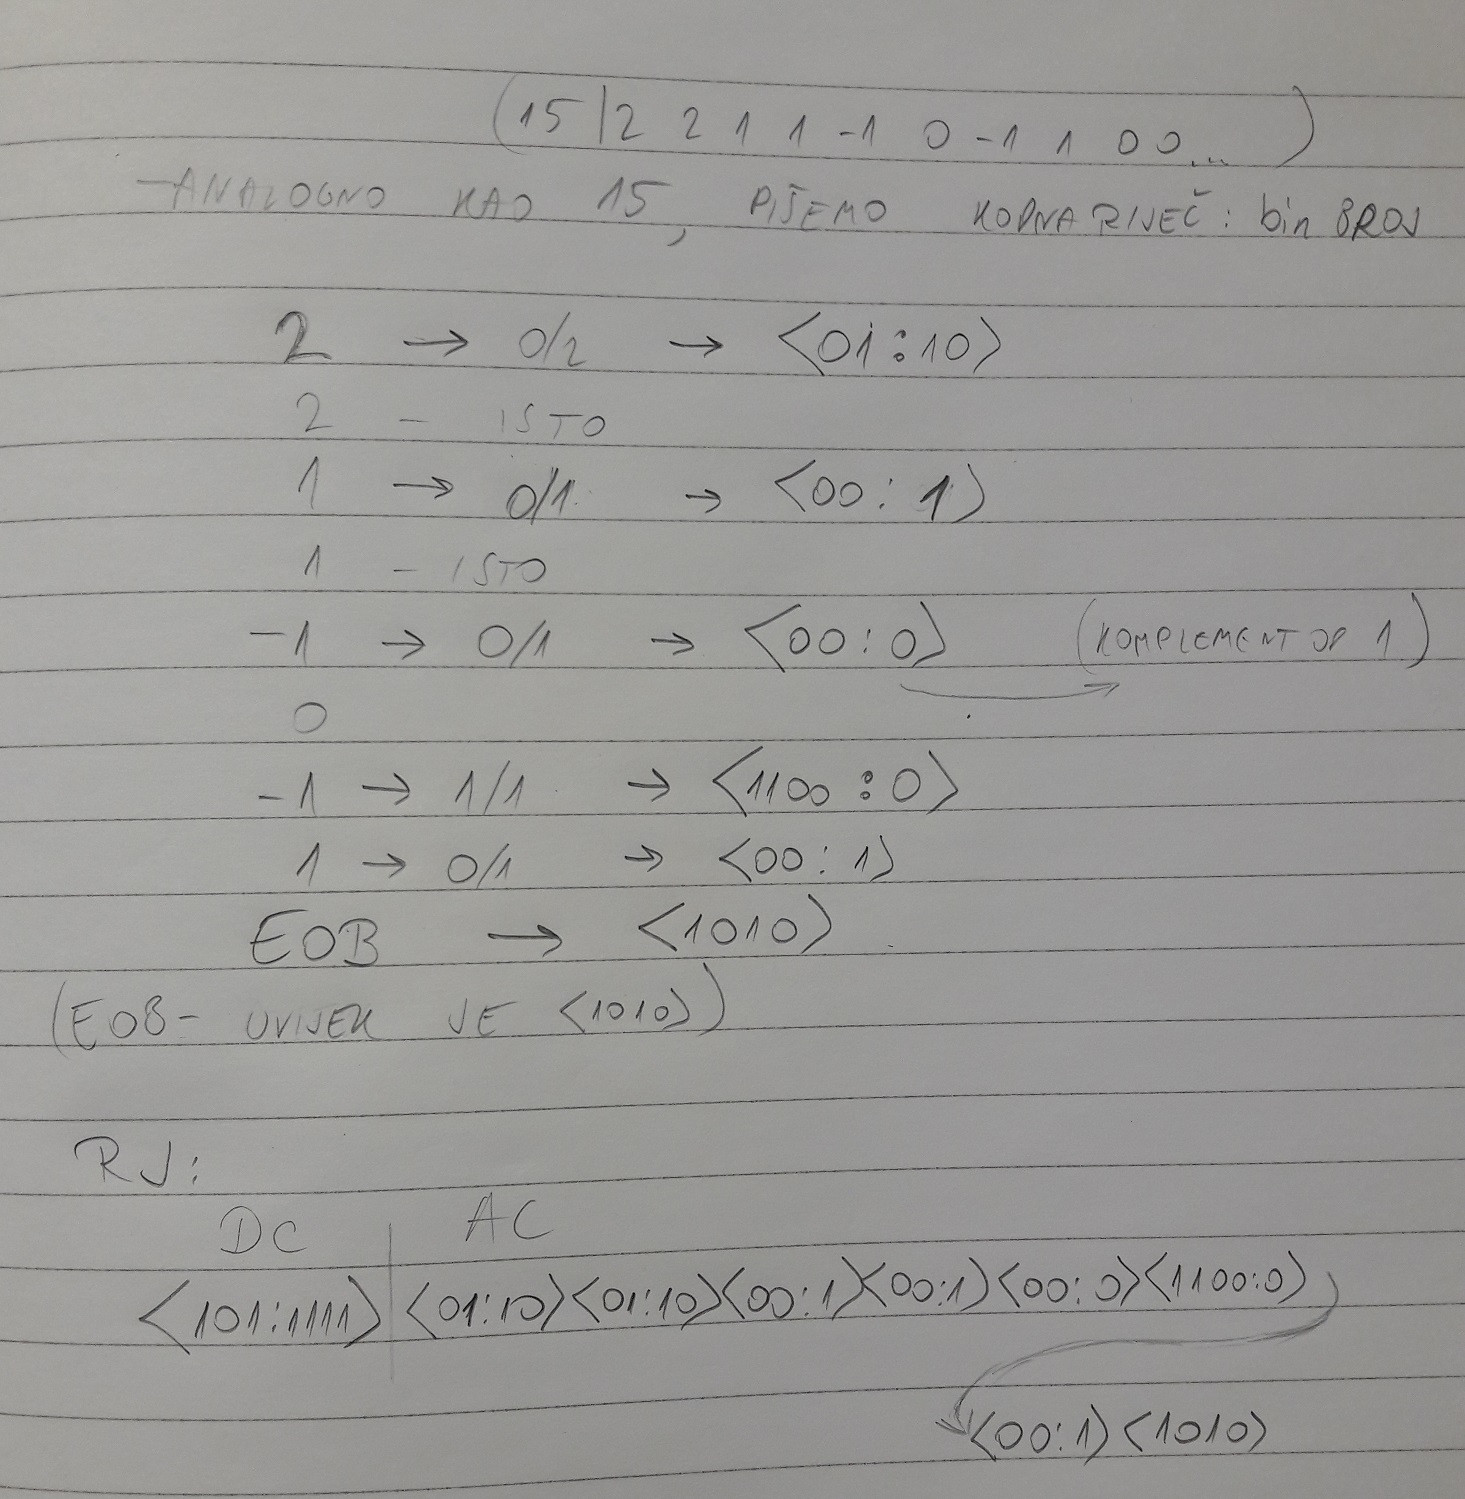 (15 | 2 2 1 1 -1 0 -1 1 0 0 ... )
- ANALOGNO KAO 15, PIŠEMO KODNA RIJEČ : bin BROJ
2 → 0/2 → <01:10>
2 - ISTO
1 → 0/1 → <00:1>
1 - ISTO
-1 → 0/1 → <00:0> (KOMPLEMENT OD 1)
0
-1 → 1/1 → <1100:0>
1 → 0/1 → <00:1>
EOB → <1010>
(EOB - UVIJEK JE <1010>)
RJ:
DC | AC
<101:1111> | <01:10><01:10><00:1><00:1><00:0><1100:0>
<00:1><1010>